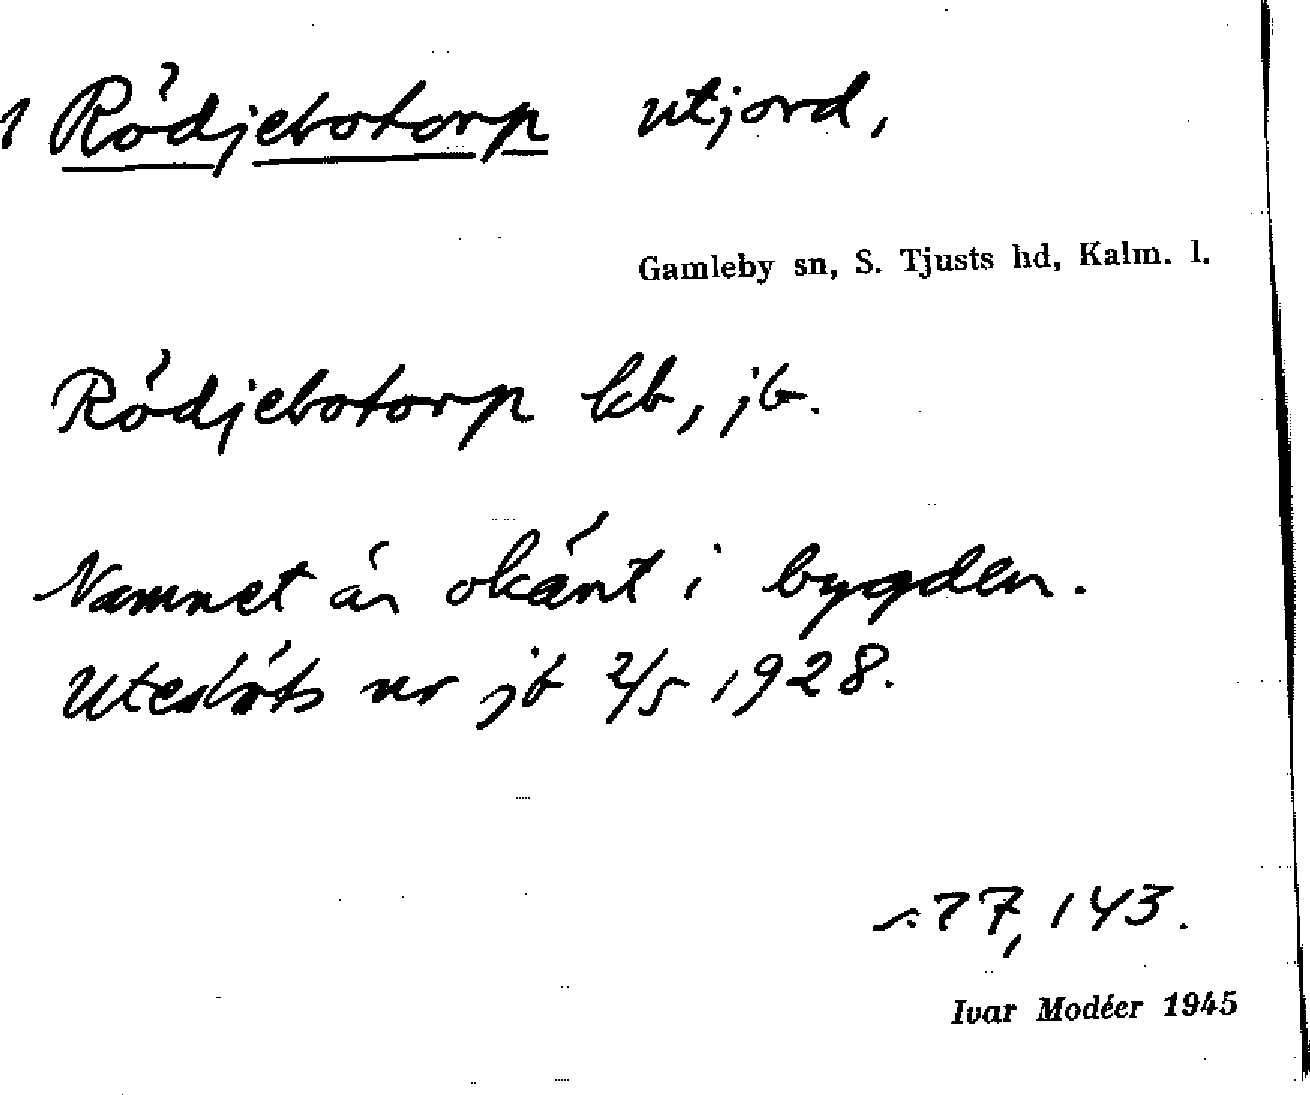 1 Rödjebotorp utjord,
Gamleby sn, S. Tjusts hd, Kalm. l.
Rödjebotorp kb, jb.
Namnet är okänt i bygden.
Uteslöts ur jb 2/5 1928.
s. 77, 143.
Ivar Modéer 1945